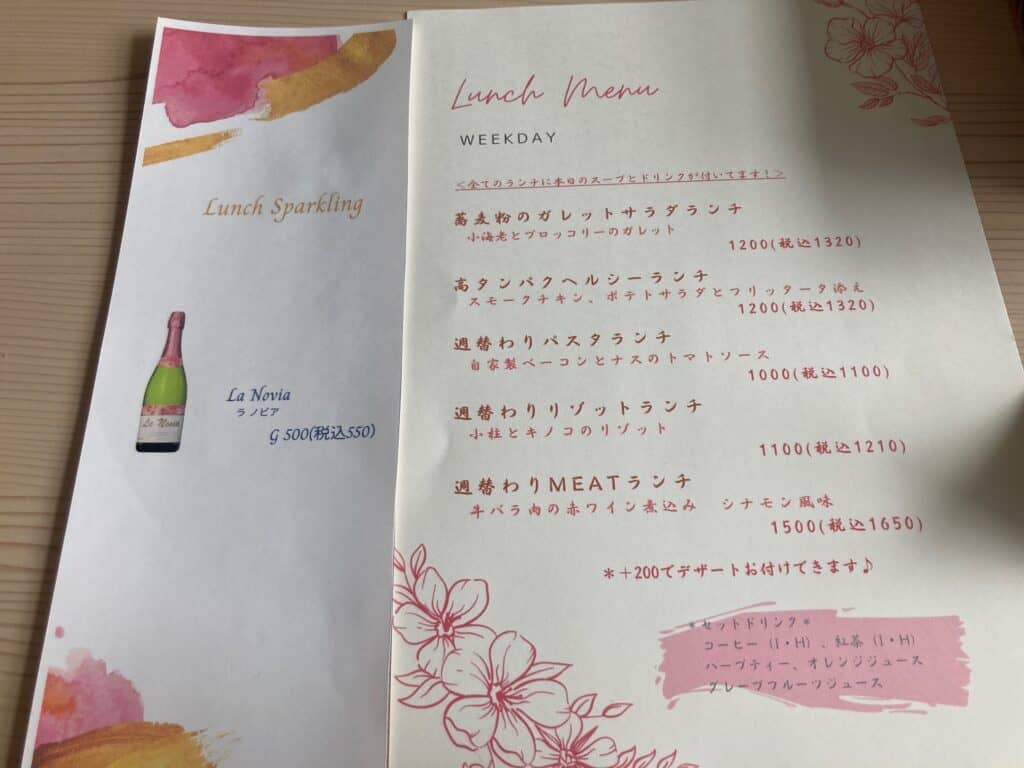 Lunch Sparkling
La Novia
La Novia
ラ ノビア
G 500(税込550)
Lunch Menu
WEEKDAY
＜全てのランチに本日のスープとドリンクが付いてます！＞
蕎麦粉のガレットサラダランチ
小海老とブロッコリーのガレット
1200(税込1320)
高タンパクヘルシーランチ
スモークチキン、ポテトサラダとフリッタータ添え
1200(税込1320)
週替わりパスタランチ
自家製ベーコンとナスのトマトソース
1000(税込1100)
週替わりリゾットランチ
小柱とキノコのリゾット
1100(税込1210)
週替わりMEATランチ
牛バラ肉の赤ワイン煮込み　シナモン風味
1500(税込1650)
＊＋200でデザートお付けできます♪
＊セットドリンク＊
コーヒー（I・H）、紅茶（I・H）
ハーブティー、オレンジジュース
グレープフルーツジュース